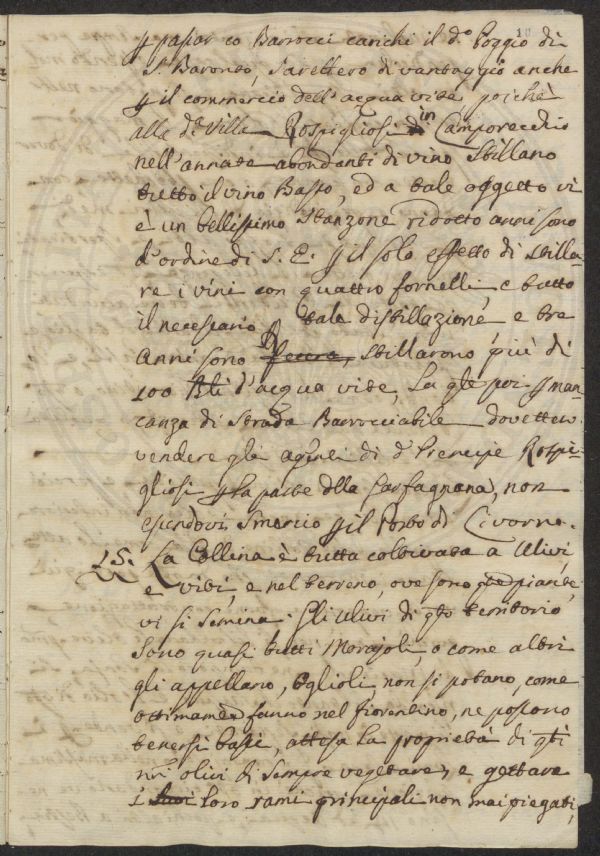 10
p passar co Barrocci carichi il d.o Poggio di
S. Baronto, Sarettero di vantaggio anche
p il commercio dell'acqua vite, poiché
alle d.e Ville Rospigliosi in Camporecchio
nell'annate abondanti di vino Stillano
tutto il vino Basso, ed a tale oggetto vi
è un bellissimo Stanzone ridotto anni sono
d'ordine di S. E. p il solo effetto di stilla-
re i vini con quattro fornelli, e tutto
il necessario p tale distillazione, e tre
anni sono stillarono più di
100 Bli d'acqua vite, La qle poi p man-
canza di Strada Barrocciabile dovettero
vendere gli agenti di d.o Principe Rospi-
gliosi p la parte della Garfagnana, non
essendovi Smercio p il Porto di Livorno.
15. La Collina è tutta coltivata a Ulivi,
e viti, e nel terreno, ove sono que piante,
vi si Semina. Gli Ulivi di qto territorio
Sono quasi tutti Morajoli, o come altri
gli appellano, Oglioli, non si potano, come
ottimamte fanno nel fiorentino, ne possono
tenersi bassi, attesa la proprietà di qti
nri olivi di Sempre vegetare, e gettare
i loro rami principali non mai piegati,